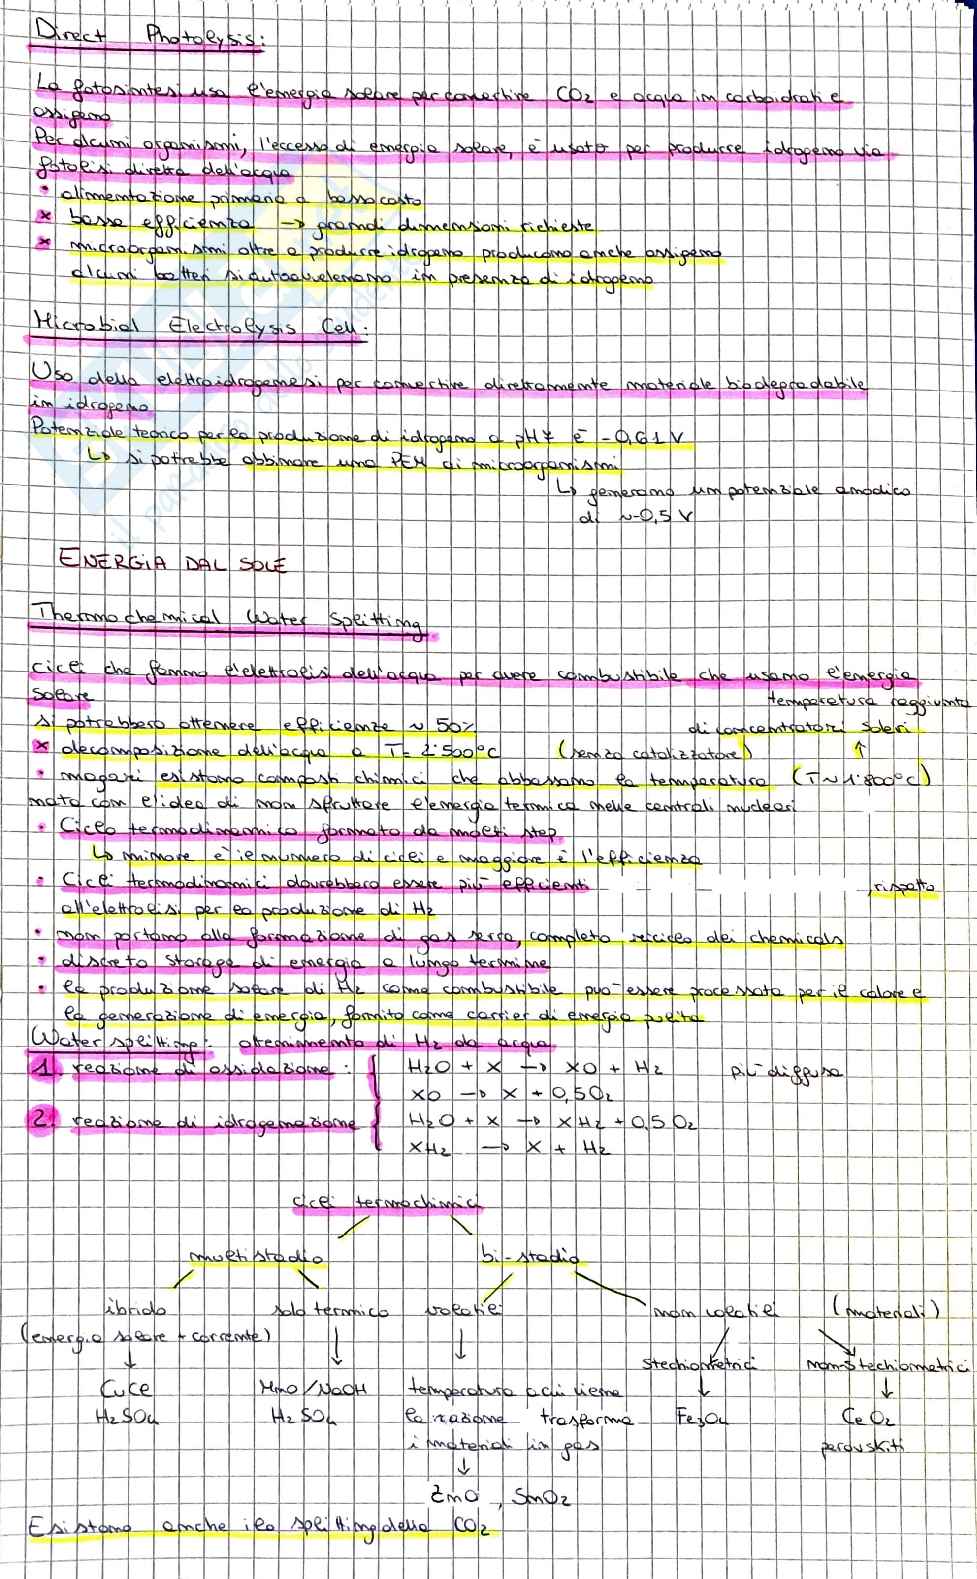 Direct Photolysis:
La fotosintesi usa l'energia solare per convertire CO2 e acqua in carboidrati e
ossigeno
Per alcuni organismi, l'eccesso di energia solare, è usato per produrre idrogeno via
fotolisi diretta dell'acqua
• alimentazione primaria a basso costo
× bassa efficienza → grandi dimensioni richieste
× microorganismi oltre a produrre idrogeno producono anche ossigeno
alcuni batteri si autoavvelenano in presenza di idrogeno
Microbial Electrolysis Cell:
Uso della elettroidrogenesi per convertire direttamente materiale biodegradabile
in idrogeno
Potenziale teorico per la produzione di idrogeno a pH 7 è -0,61 V
↳ si potrebbe abbinare una PEM ai microorganismi
↳ generano un potenziale anodico
di ~-0,5 V
ENERGIA DAL SOLE
Thermochemical Water Splitting
cicli che fanno l'elettrolisi dell'acqua per avere combustibile che usano l'energia
solare
temperatura raggiunta
si potrebbero ottenere efficienze ~ 50%
di concentratori solari
× decomposizione dell'acqua a T= 2'500°C (senza catalizzatore) ↑
• magari esistono composti chimici che abbassano la temperatura (T~1'800°C)
nata con l'idea di non sfruttare l'energia termica nelle centrali nucleari
• Ciclo termodinamico formato da molti step
↳ minore è il numero di cicli e maggiore è l'efficienza
• Cicli termodinamici dovrebbero essere più efficienti rispetto
all'elettrolisi per la produzione di H2
• non portano alla formazione di gas serra, completo riciclo dei chemicals
• discreto storage di energia a lungo termine
• la produzione solare di H2 come combustibile può essere processata per il calore e
la generazione di energia, fornito come carrier di energia pulita
Water splitting: ottenimento di H2 da acqua
1. reazione di ossidazione: { H2O + X → XO + H2 più diffusa
XO → X + 0,5O2
2. reazione di idrogenazione { H2O + X → XH2 + 0,5 O2
XH2 → X + H2
cicli termochimici
multistadio bi-stadio
ibrido solo termico volatili non volatili (materiali)
(energia solare + corrente)
↓ ↓ ↓ stechiometrici non-stechiometrici
CuCl MnO/NaOH temperatura a cui viene ↓ ↓
H2SO4 H2SO4 la razione trasforma Fe3O4 CeO2
i materiali in gas perovskiti
↓
ZnO , SnO2
Esistono anche lo splitting della CO2